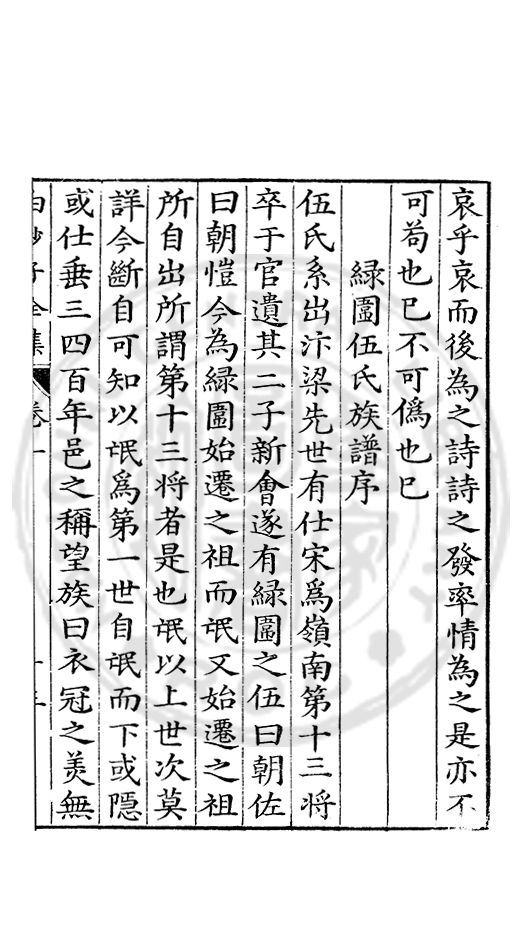 哀乎哀而後為之詩詩之發率情為之是亦不
可茍也已不可僞也已
綠圍伍氏族譜序
伍氏系出汴梁先世有仕宋爲嶺南第十三將
卒于官遺其二子新會遂有綠圍之伍曰朝佐
曰朝愷今為綠圍始遷之祖而氓又始遷之祖
所自出所謂第十三将者是也氓以上世次莫
詳今斷自可知以氓爲第一世自氓而下或隱
或仕垂三四百年邑之稱望族曰衣冠之美無
白沙子全集 卷一